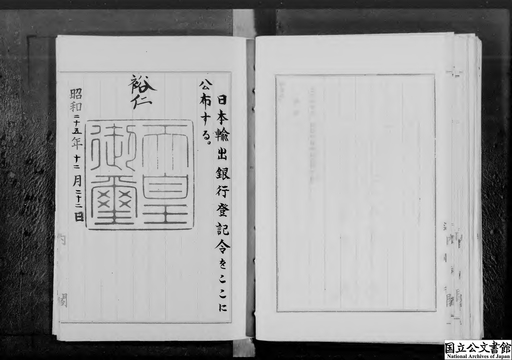 日本輸出銀行登記令をここに
公布する。
裕仁
天皇
御璽
昭和二十五年十二月二十二日
内閣
国立公文書館
National Archives of Japan